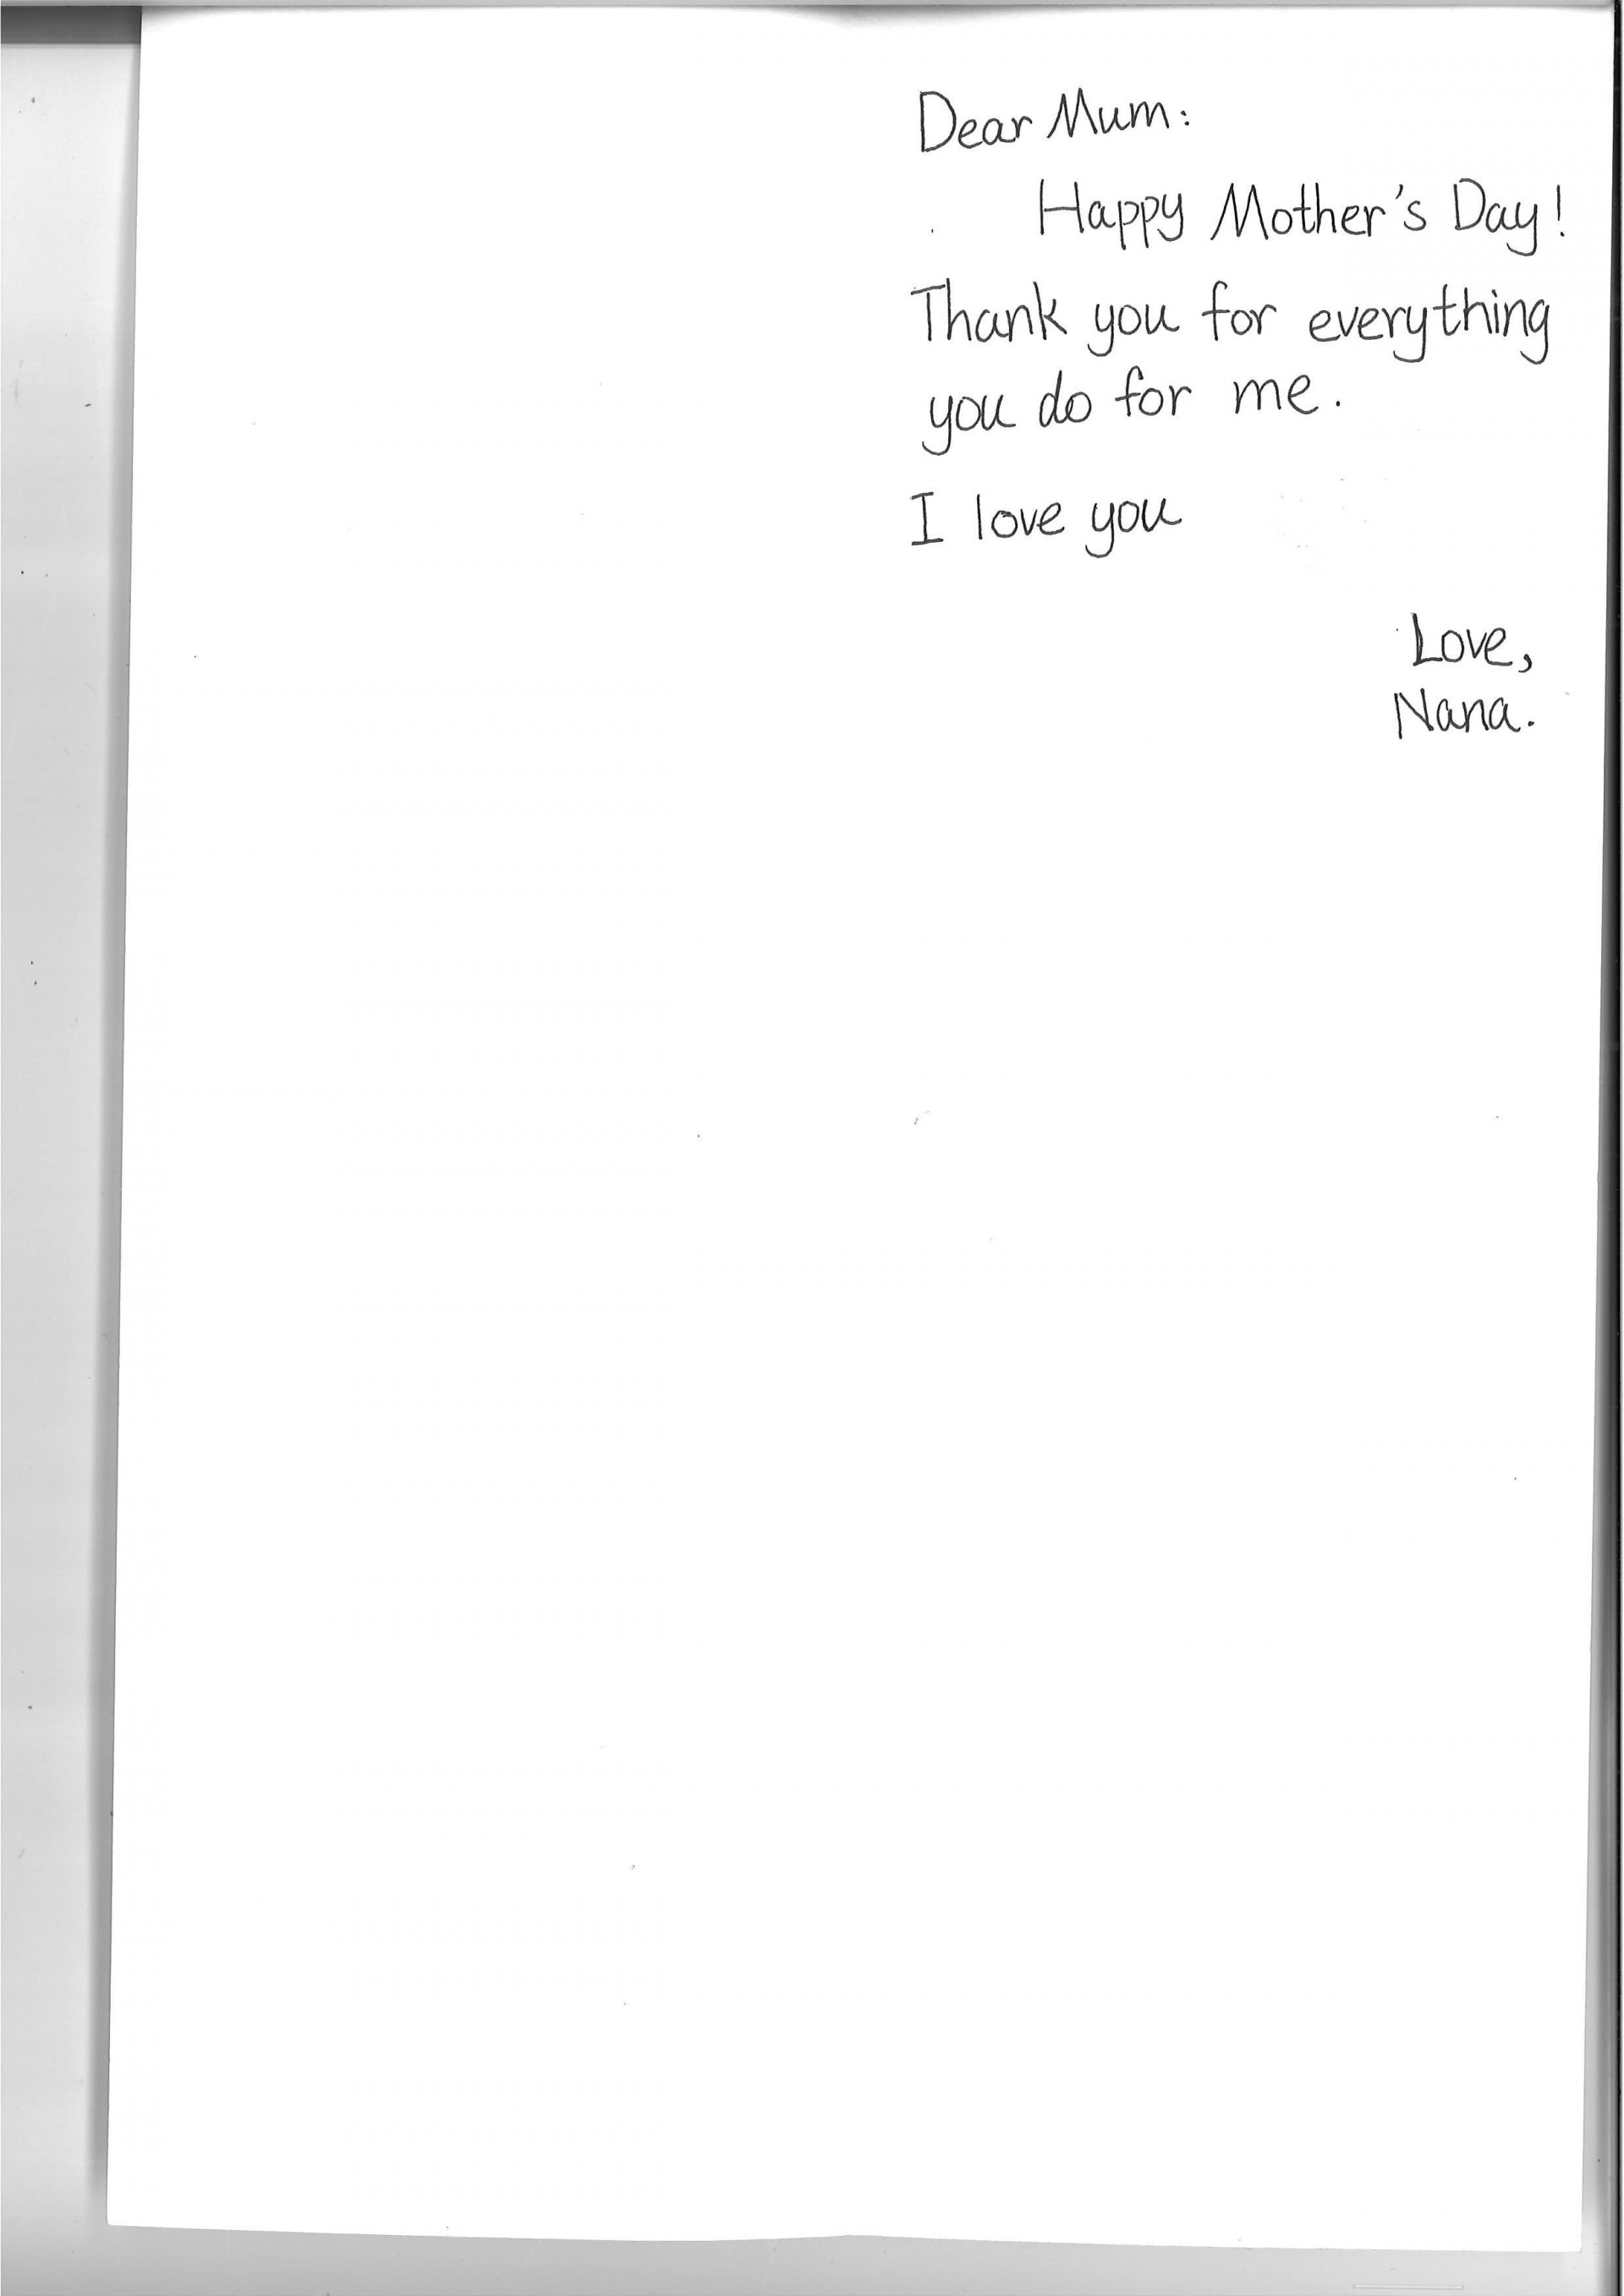 Dear Mum:
Happy Mother's Day!
Thank you for everything
you do for me.
I love you
Love,
Nana.